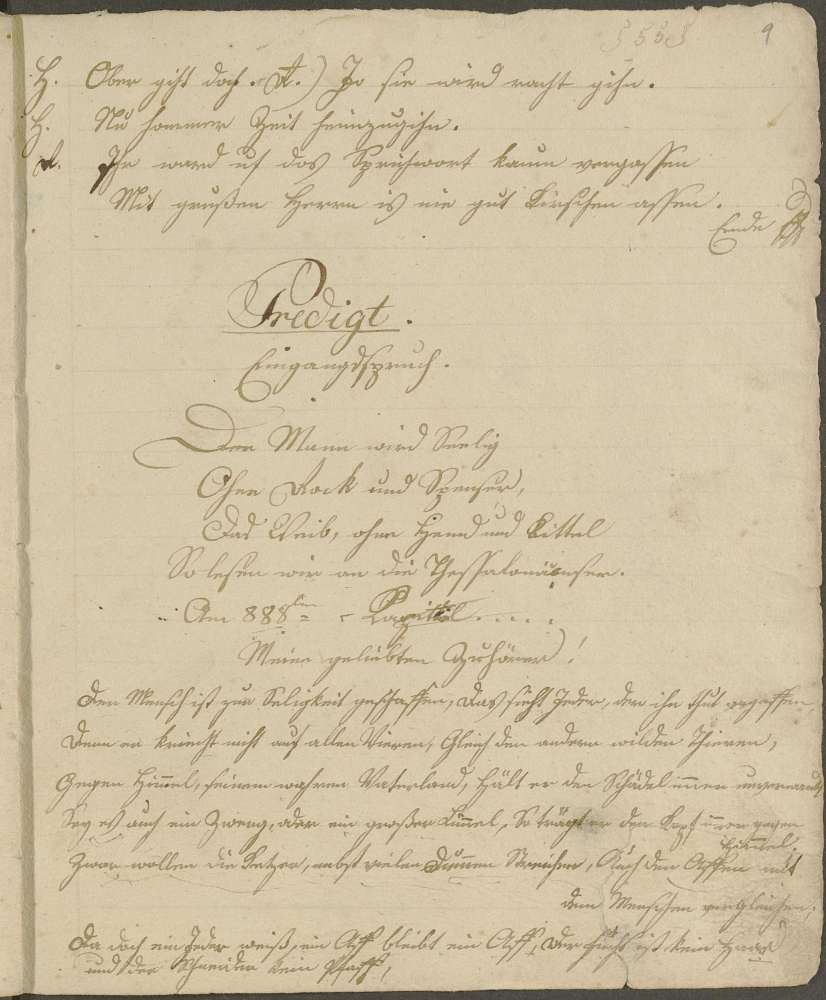 § 55 § 9
H. Ober giht doch. A.) Jo sie wird racht gihn.
H. Nu hommer Zeit heimzugihn.
A. Ihr ward uf das Sprichwort kaum vergassen
Mit grußen Herrn is nie gut Kirschen assen.
Ende
Predigt.
Eingangsspruch.
Der Mann wird Seelig
Ohne Rock und Spenser,
Das Weib, ohne Hemd und Kittel
So lesen wir an die Thessalonicenser.
Am 888ten Kapittel.....
Meine geliebten Zuhörer!
Der Mensch ist zur Seligkeit geschaffen, das sieht Jeder, der ihn thut angaffen,
Denn er kriecht nicht auf allen Vieren, Gleich den andern wilden Thieren,
Gegen Himmel, seinem wahren Vaterland, hält er den Schädel immer unverwandt
Sey es auch ein Zwerg, oder ein großer Lümmel, So trägt er den Kopf immer gegen
Himmel.
Zwar wollen die Ketzer, nebst vielen Dummen Streichen, Auch den Affen mit
dem Menschen vergleichen,
Da doch ein Jeder weiß, ein Aff bleibt ein Aff, der ist kein
und der Schneider kein Pfaff,